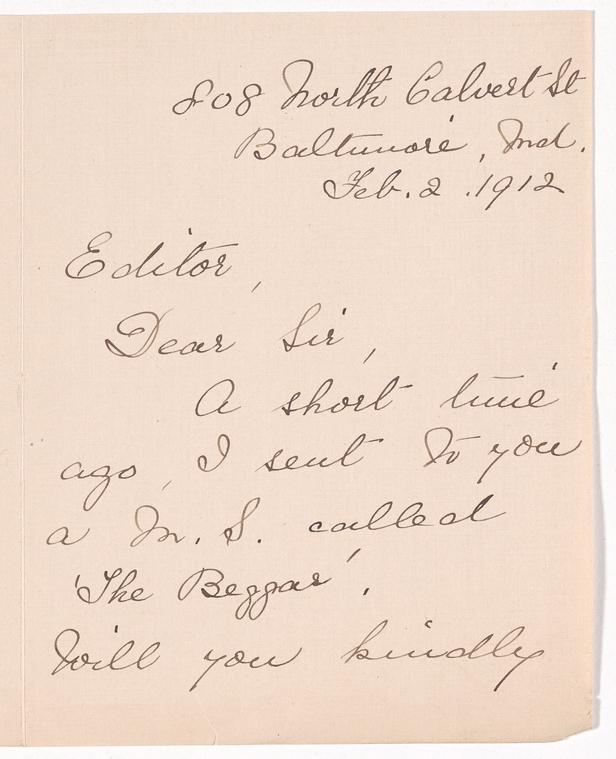 808 North Calvert St
Baltimore, Md.
Feb. 2. 1912
Editor,
Dear Sir,
A short time
ago, I sent to you
a M. S. called
'The Beggar'.
Will you kindly